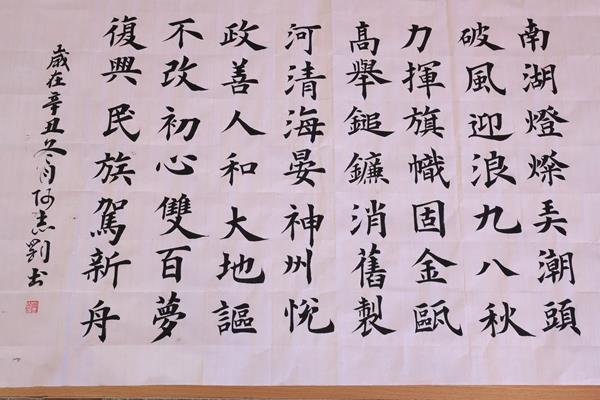 南湖燈燦弄潮頭
破風迎浪九八秋
力揮旗幟固金甌
高舉鎚鐮消舊製
河清海晏神州悅
政善人和大地謳
不改初心雙百夢
復興民族駕新舟
歲在辛丑冬月阿志劉书